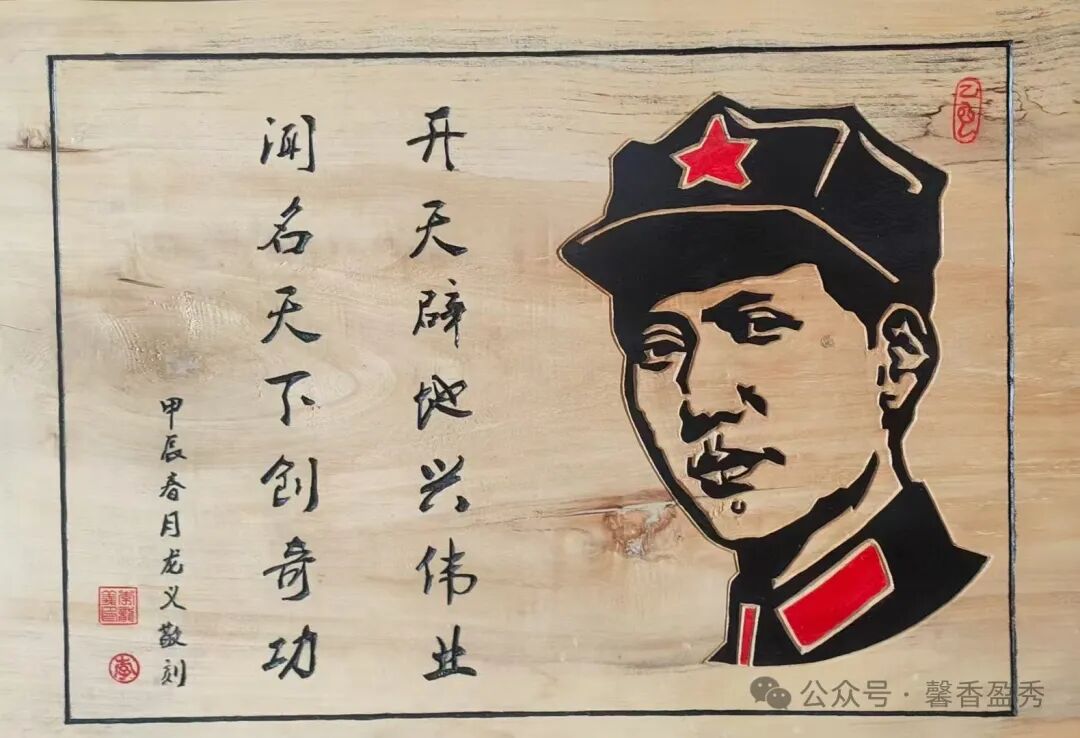 开天辟地兴伟业
闻名天下创奇功
甲辰春月龙义敬刻
李
公众号·馨香盈秀